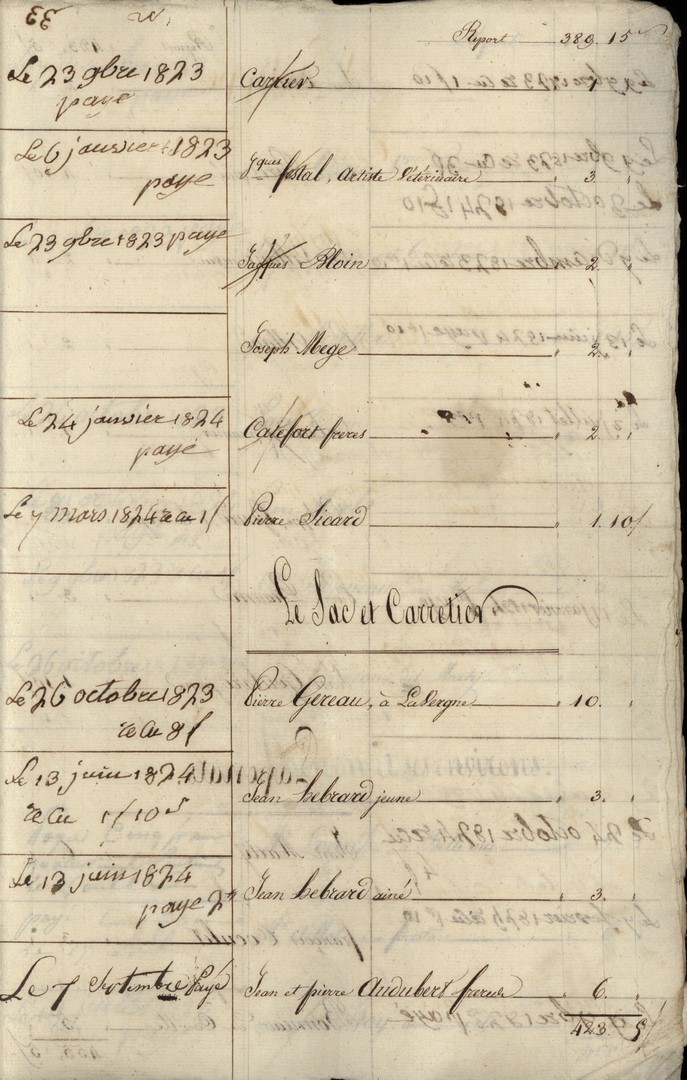 33
Report 389. 15
Le 23 9bre 1823
payé
Cartier 1
Le 6 janvier 1823
payé
Jques fostal, Artiste Vétérinaire " 3. "
Le 23 9bre 1823 payé
Jacques Bloin " 2. "
Joseph Mege " 2. "
Le 24 janvier 1824
payé
Catefort freres " 2. "
Le 7 mars 1824 recu 1f
Pierre Sicard " 1. 10
Le Sac et Carretier
Le 26 octobre 1823
recu 8f
Pierre Gereau, à LaVergne " 10. "
Le 13 juin 1824
recu 1f 10s
Jean Lebrard jeune " 3. "
Le 13 juin 1824
payé 2
Jean Lebrard ainé " 3. "
Le 7 Septembre Payé
Jean et pierre Audubert freres " 6. "
423. 5